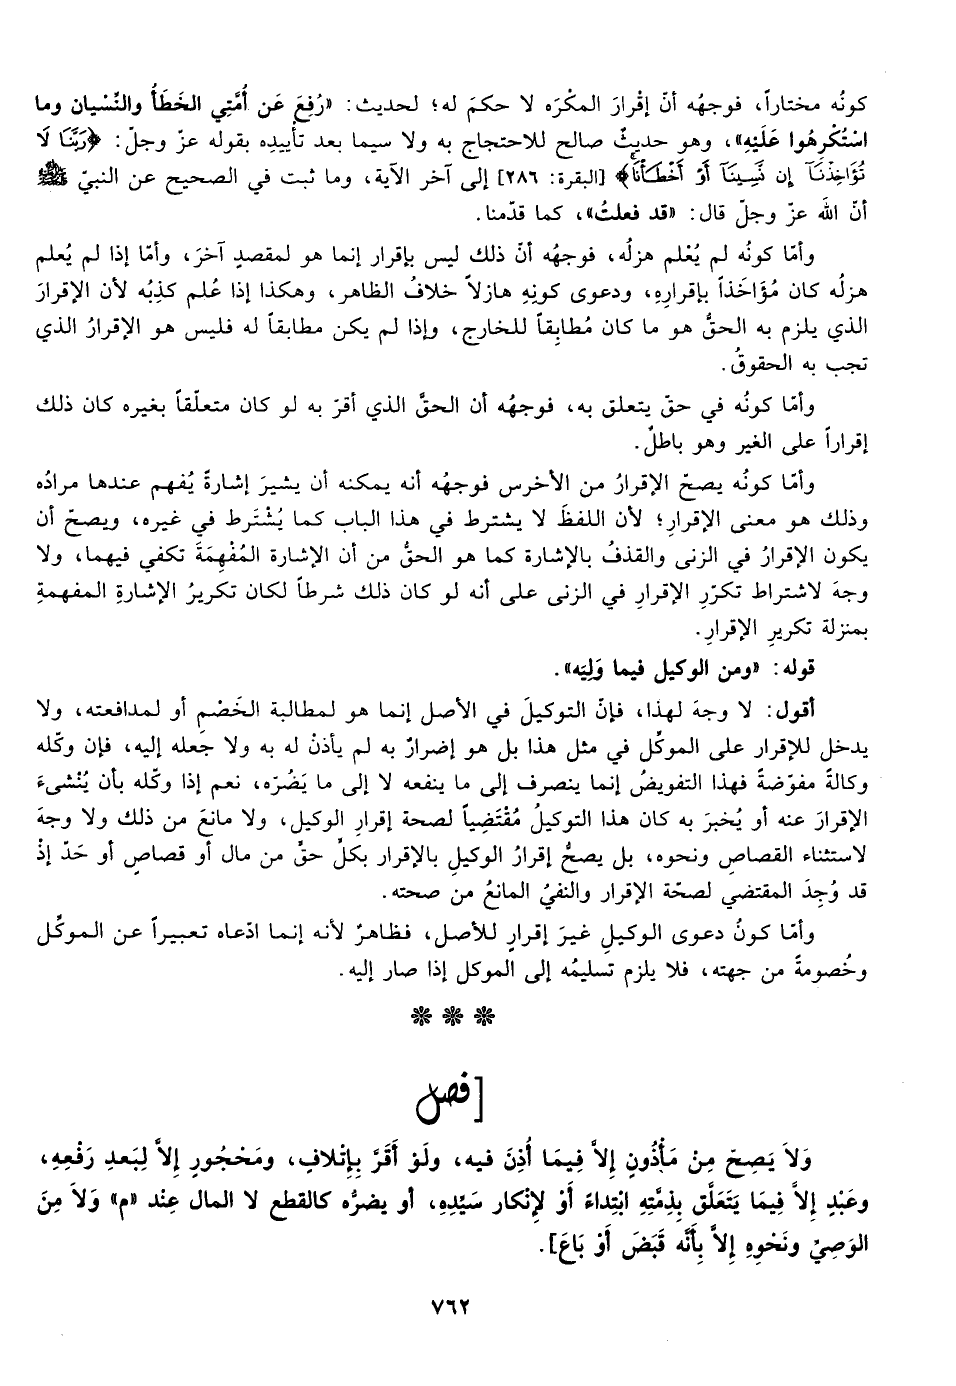 كونُه مختاراً، فوجهُه أنّ إقْرارَ المكْرَه لا حكمَ له؛ لحديث: «رُفِعَ عَن أُمَّتِي الخَطَأُ والنِّسْيان وما
اسْتُكْرِهُوا عَلَيْهِ»، وهو حديثٌ صالح للاحتجاج به ولا سيما بعد تأييدِه بقوله عزّ وجلّ: ﴿رَبَّنَا لَا
تُؤَاخِذْنَآ إِن نَّسِينَآ أَوْ أَخْطَأْنَا﴾ [البقرة: ٢٨٦] إلى آخر الآية، وما ثبت في الصحيح عن النبيّ ﷺ
أنّ اللهَ عزّ وجلّ قال: «قد فعلتُ»، كما قدّمنا.
وأمّا كونُه لم يُعْلم هزلُه، فوجهُه أنّ ذلك ليس بإقرار إنما هو لمقصدٍ آخرَ، وأمّا إذا لم يُعلم
هزلُه كان مُؤَاخَذاً بإقرارِهِ، ودعوى كونِهِ هازلاً خلافُ الظاهر، وهكذا إذا عُلم كذِبُه لأن الإقرارَ
الذي يلزم به الحقُّ هو ما كان مُطابِقاً للخارج، وإذا لم يكن مطابقاً له فليس هو الإقرارُ الذي
تجب به الحقوقُ.
وأمّا كونُه في حقّ يتعلق به، فوجهُه أن الحقَّ الذي أقرّ به لو كان متعلّقاً بغيره كان ذلك
إقراراً على الغير وهو باطلٌ.
وأمّا كونُه يصحّ الإقرارُ من الأخرس فوجهُه أنه يمكنه أن يشيرَ إشارةً يُفهم عندها مرادُه
وذلك هو معنى الإقرارِ؛ لأن اللفظَ لا يشترط في هذا الباب كما يُشْتَرط في غيره، ويصحّ أن
يكون الإقرارُ في الزنى والقذفُ بالإشارة كما هو الحقُّ من أن الإشارة المُفْهِمَةَ تكفي فيهما، ولا
وجهَ لاشتراط تكرّرِ الإقرارِ في الزنى على أنه لو كان ذلك شرطاً لكان تكريرُ الإشارةِ المفهمةِ
بمنزلة تكريرِ الإقرارِ.
قوله: «ومن الوكيل فيما وَلِيَه».
أقول: لا وجهَ لهذا، فإنّ التوكيلَ في الأصل إنما هو لمطالبة الخَصْمِ أو لمدافعته، ولا
يدخل للإقرار على الموكِّل في مثل هذا بل هو إضرارٌ به لم يأذنْ له به ولا جعله إليه، فإن وكّله
وكالةً مفوّضةً فهذا التفويضُ إنما ينصرف إلى ما ينفعه لا إلى ما يَضُرّه، نعم إذا وكّله بأن يُنْشىءَ
الإقرارَ عنه أو يُخبرَ به كان هذا التوكيلُ مُقْتَضِياً لصحة إقرارِ الوكيل، ولا مانعَ من ذلك ولا وجهَ
لاستثناء القصاصِ ونحوه، بل يصحُّ إقرارُ الوكيلِ بالإقرار بكلِّ حقٍّ من مال أو قصاصٍ أو حَدّ إذْ
قد وُجِدَ المقتضي لصحّة الإقرار والنفيُ المانعُ من صحته.
وأمّا كونُ دعوى الوكيلِ غيرَ إقرارٍ للأصل، فظاهرٌ لأنه إنما ادّعاه تعبيراً عن الموكِّل
وخُصومةً من جهته، فلا يلزم تسليمُه إلى الموكل إذا صار إليه.
[فصل
وَلاَ يَصِحَ مِنْ مَأْذُونٍ إِلاَّ فِيمَا أُذِنَ فيه، ولَوْ أَقَرَّ بِإِتْلافٍ، ومَحْجُورٍ إِلاَّ لِبَعدِ رَفْعِهِ،
وعَبْدٍ إِلاَّ فِيمَا يَتَعَلَّق بِذِمَّتِهِ ابْتِداءً أَوْ لإِنْكار سَيِّدِهِ، أو يضرُّه كالقطع لا المال عِنْد «م» وَلاَ مِنَ
الوَصِيِّ ونَحْوِهِ إِلاَّ بِأَنَّه قَبَضَ أَوْ بَاعَ].
٧٦٢